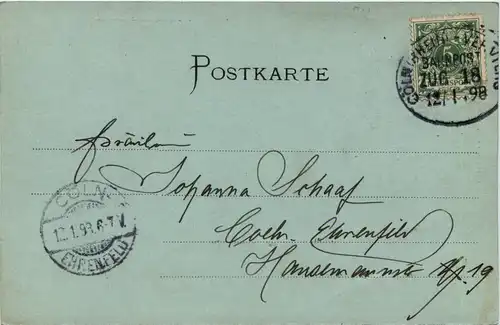 CÖLN
BAHNPOST
ZUG 18
12/1.98
POSTKARTE
Fräulein
Johanna Schaaf
Coeln-Ehrenfeld
CÖLN
12.1.98.6-7.V.
EHRENFELD
19